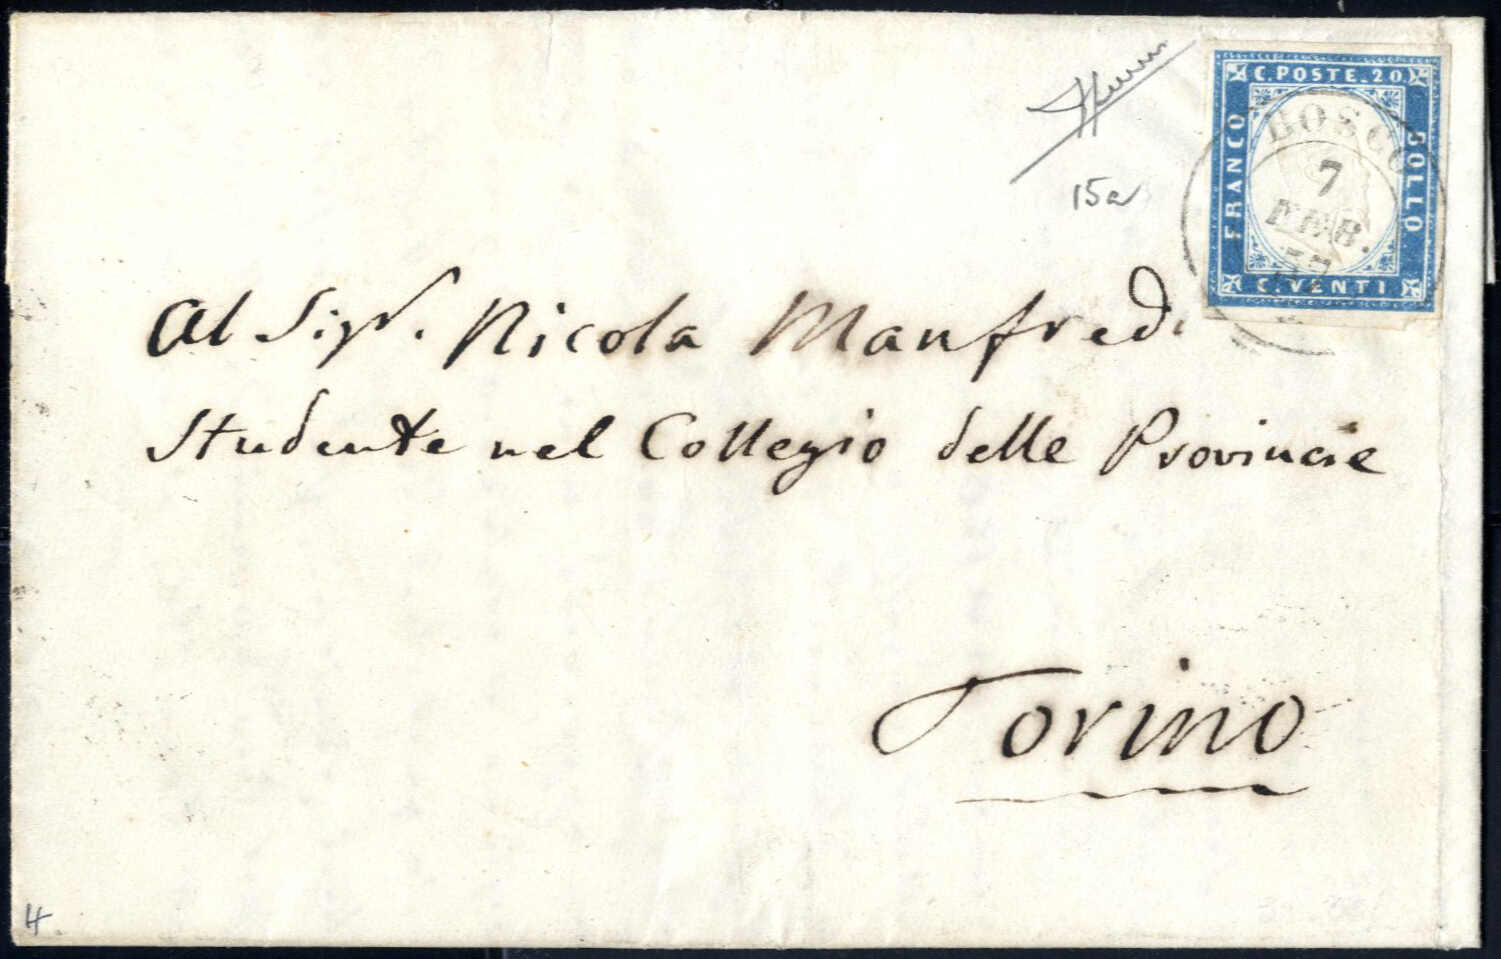 C. POSTE. 20.
FRANCO
BOLLO
C. VENTI
BOSCO
7
FEB.
57
15a
Al Sigr. Nicola Manfredi
Studente nel Collegio delle Provincie
Torino
4.